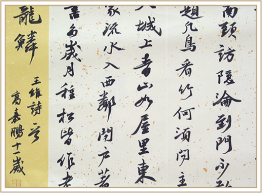 南頭訪隱淪到門不敢
題凡鳥看竹何須問主
人城上青山如屋里東
家流水入西鄰閉户著
書多歲月種松皆作老
龍鱗
王維詩
高嘉鵬十一歲